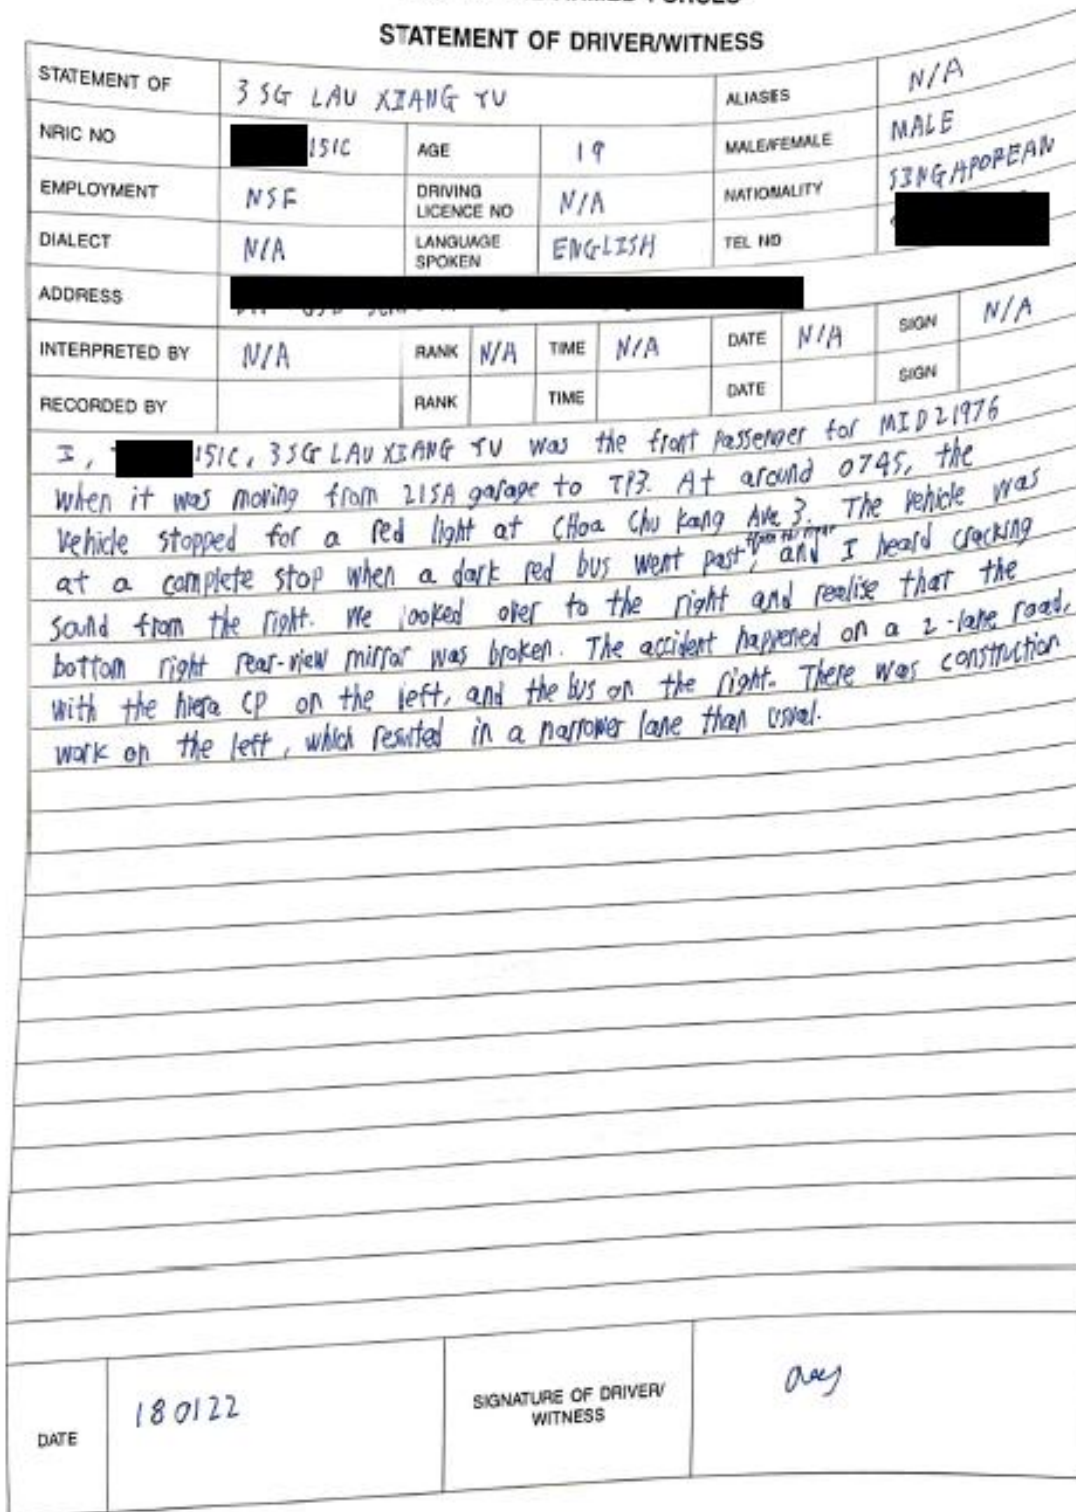 STATEMENT OF DRIVER/WITNESS
STATEMENT OF 3SG LAU XIANG YU ALIASES N/A
NRIC NO 151C AGE 19 MALE/FEMALE MALE
EMPLOYMENT NSF DRIVING LICENCE NO N/A NATIONALITY SINGAPOREAN
DIALECT N/A LANGUAGE SPOKEN ENGLISH TEL NO
ADDRESS
INTERPRETED BY N/A RANK N/A TIME N/A DATE N/A SIGN N/A
RECORDED BY RANK TIME DATE SIGN
I, 151C, 3SG LAU XIANG YU was the front passenger for MID21976
when it was moving from 215A garage to TP3. At around 0745, the
vehicle stopped for a red light at CHoa Chu Kang Ave 3. The vehicle was
at a complete stop when a dark red bus went past, and I heard cracking
sound from the right. We looked over to the right and realise that the
bottom right rear-view mirror was broken. The accident happened on a 2-lane road,
with the hiera CP on the left, and the bus on the right. There was construction
work on the left, which resulted in a narrower lane than usual.
DATE 180122 SIGNATURE OF DRIVER/ WITNESS